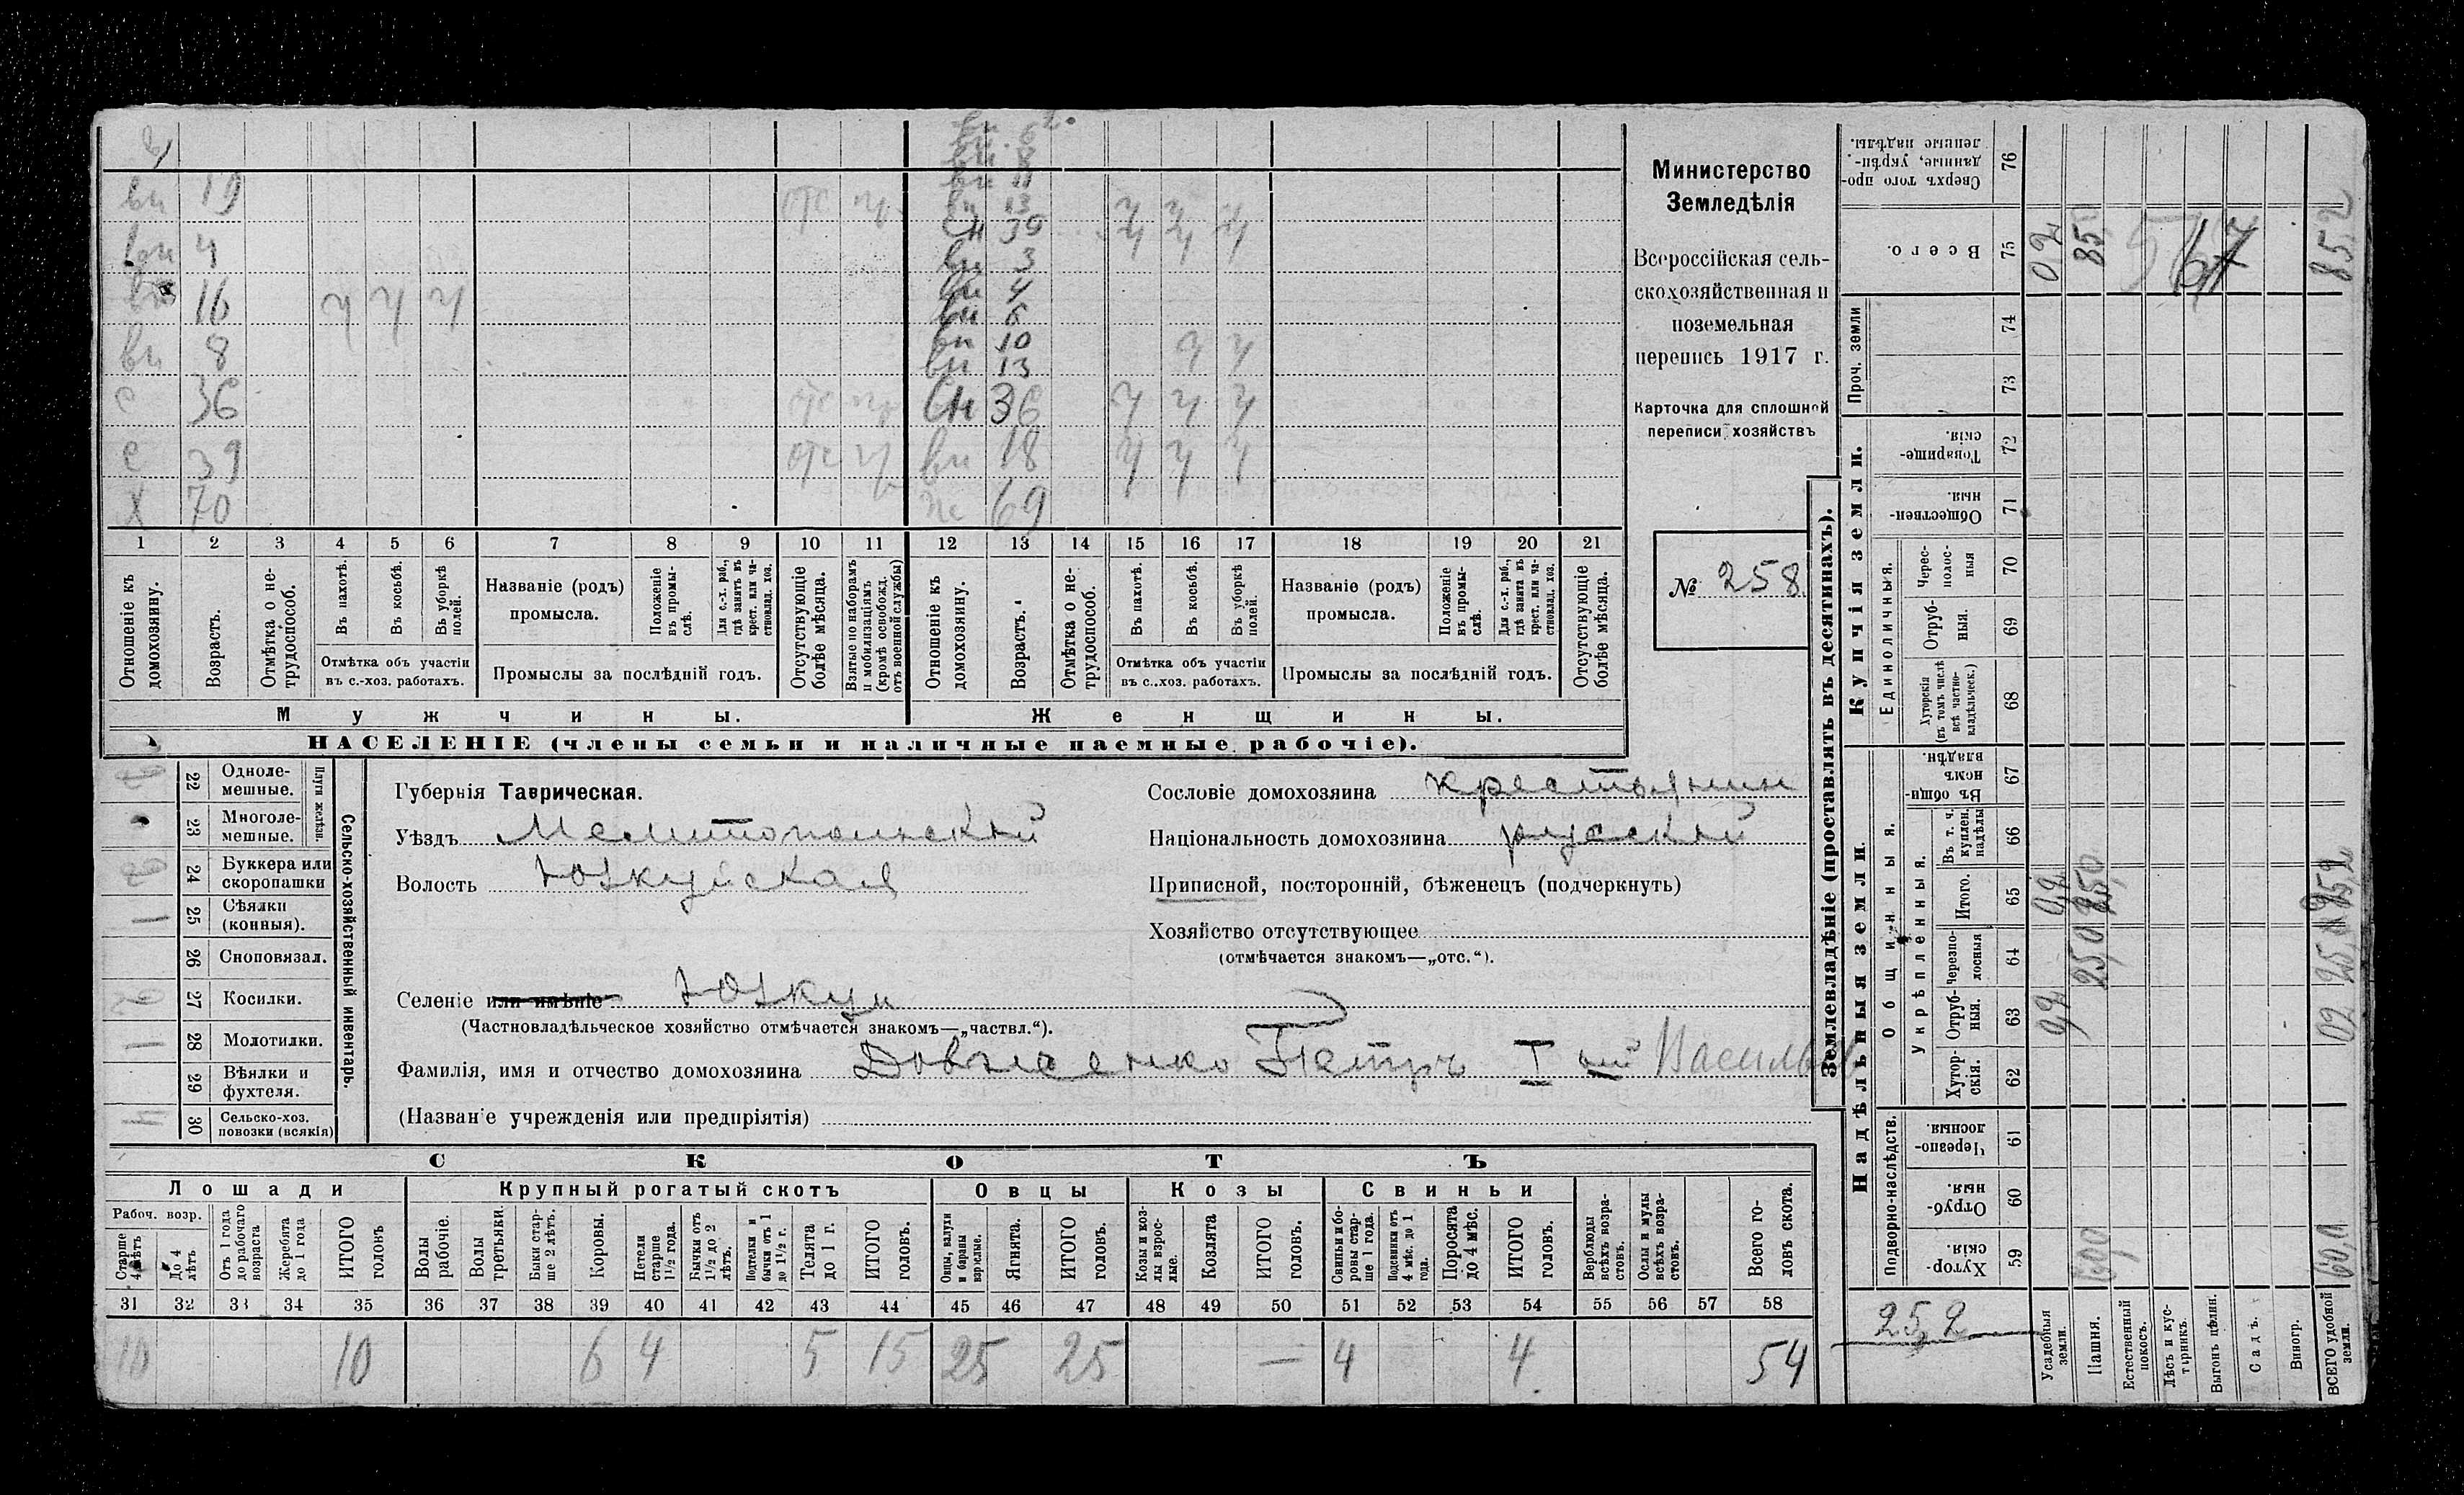 Министерство
Земледѣлія
Всероссійская сель-
скохозяйственная и
поземельная
перепись 1917 г.
Карточка для сплошной
переписи хозяйствъ
№ 258
вн 19 отс
вн 4
вн 16 ч ч ч
вн 8
с 36 отс
с 39 отс
Х 70
вн 6
вн 8
вн 11
вн 13
сн 39 ч ч ч
вн 3
вн 4
вн 6
вн 10
вн 13 ч ч
сн 36 ч ч ч
вн 18 ч ч ч
ж 69
1 2 3 4 5 6 7 8 9 10 11 12 13 14 15 16 17 18 19 20 21
Отношеніе къ домохозяину.
Возрастъ.
Отмѣтка о не-трудоспособ.
Въ пахотѣ.
Въ косьбѣ.
Въ уборкѣ полей.
Отмѣтка объ участіи
въ с.-хоз. работахъ.
Названіе (родъ)
промысла.
Положеніе въ промы-слѣ.
Для с.-х. раб., гдѣ занятъ въ крест. или ча-стновлад. хоз.
Промыслы за послѣдній годъ.
Отсутствующіе болѣе мѣсяца.
Взятые по наборамъ и мобилизаціямъ (кромѣ освобожд. отъ военной службы)
Отношеніе къ домохозяину.
Возрастъ.
Отмѣтка о не-трудоспособ.
Въ пахотѣ.
Въ косьбѣ.
Въ уборкѣ полей.
Отмѣтка объ участіи
въ с.-хоз. работахъ.
Названіе (родъ)
промысла.
Положеніе въ промы-слѣ.
Для с.-х. раб., гдѣ занята въ крест. или ча-стновлад. хоз.
Промыслы за послѣдній годъ.
Отсутствующіе болѣе мѣсяца.
Мужчины.
Женщины.
НАСЕЛЕНІЕ (члены семьи и наличные наемные рабочіе).
Сельско-хозяйственный инвентарь.
Плуги желѣзн.
22 Одноле-мешные.
23 Многоле-мешные.
24 Буккера или скоропашки
1 25 Сѣялки (конныя).
26 Сноповязал.
27 Косилки.
1 28 Молотилки.
29 Вѣялки и фухтеля.
4 30 Сельско-хоз. повозки (всякія)
Губернія Таврическая.
Уѣздъ Мелитопольскій
Волость Юзкуйская
Селеніе или имѣніе Юзкуи
(Частновладѣльческое хозяйство отмѣчается знакомъ—„частвл.“).
Фамилія, имя и отчество домохозяина Довженко Петръ I ый Васильев
(Названіе учрежденія или предпріятія)
Сословіе домохозяина крестьянин
Національность домохозяина русскій
Приписной, посторонній, бѣженецъ (подчеркнуть)
Хозяйство отсутствующее
(отмѣчается знакомъ—„отс.“).
СКОТЪ
Лошади
Крупный рогатый скотъ
Овцы
Козы
Свиньи
Рабоч. возр.
Старше 4 лѣтъ
До 4 лѣтъ
Отъ 1 года до рабочаго возраста
Жеребята до 1 года
ИТОГО головъ
Волы рабочіе.
Волы третьяки.
Быки стар-ше 2 лѣтъ.
Коровы.
Петели старше 1½ года.
Бычки отъ 1½ до 2 лѣтъ.
Подтелки и бычки отъ 1 до 1½ г.
Телята до 1 г.
ИТОГО головъ.
Овцы, валухи и бараны взрослые.
Ягнята.
ИТОГО головъ.
Козы и коз-лы взрос-лые.
Козлята
ИТОГО головъ.
Свиньи и бо-ровы стар-ше 1 года.
Подсвинки отъ 4 мѣс. до 1 года.
Поросята до 4 мѣс.
ИТОГО головъ.
Верблюды всѣхъ возра-стовъ.
Ослы и мулы всѣхъ возра-стовъ.
Всего го-ловъ скота.
31 32 33 34 35 36 37 38 39 40 41 42 43 44 45 46 47 48 49 50 51 52 53 54 55 56 57 58
10 10 6 4 5 15 25 25 — 4 4 54
Землевладѣніе (проставлять въ десятинахъ).
Надѣльныя земли.
Купчія земли.
Проч. земли
Подворно-наслѣдств.
Общинныя.
Укрѣпленныя.
Единоличныя.
59 Хутор-скія.
60 Отруб-ныя.
61 Черезпо-лосныя
62 Хутор-скія.
63 Отруб-ныя.
64 Черезпо-лосныя
65 Итого.
66 Въ т. ч. куплен. надѣлы
67 Въ общи-номъ владѣн.
68 Хуторскія (въ томъ числѣ всѣ частно-владѣльческ.)
69 Отруб-ныя.
70 Черес-полос-ныя
71 Обществен-ныя.
72 Товарище-скія.
73
74
75 Всего.
76 Сверхъ того про-данные, укрѣп-ленные надѣлы.
25,2
Усадебныя земли. 0,2 0,2 02
Пашня. 60,0 25,0 25,0 85
Естественный покосъ.
Лѣсъ и кус-тарникъ.
Выгонъ цѣлин.
Садъ.
Виногр.
ВСЕГО удобной земли. 60,0 02 25,0 25,2 85,2
567